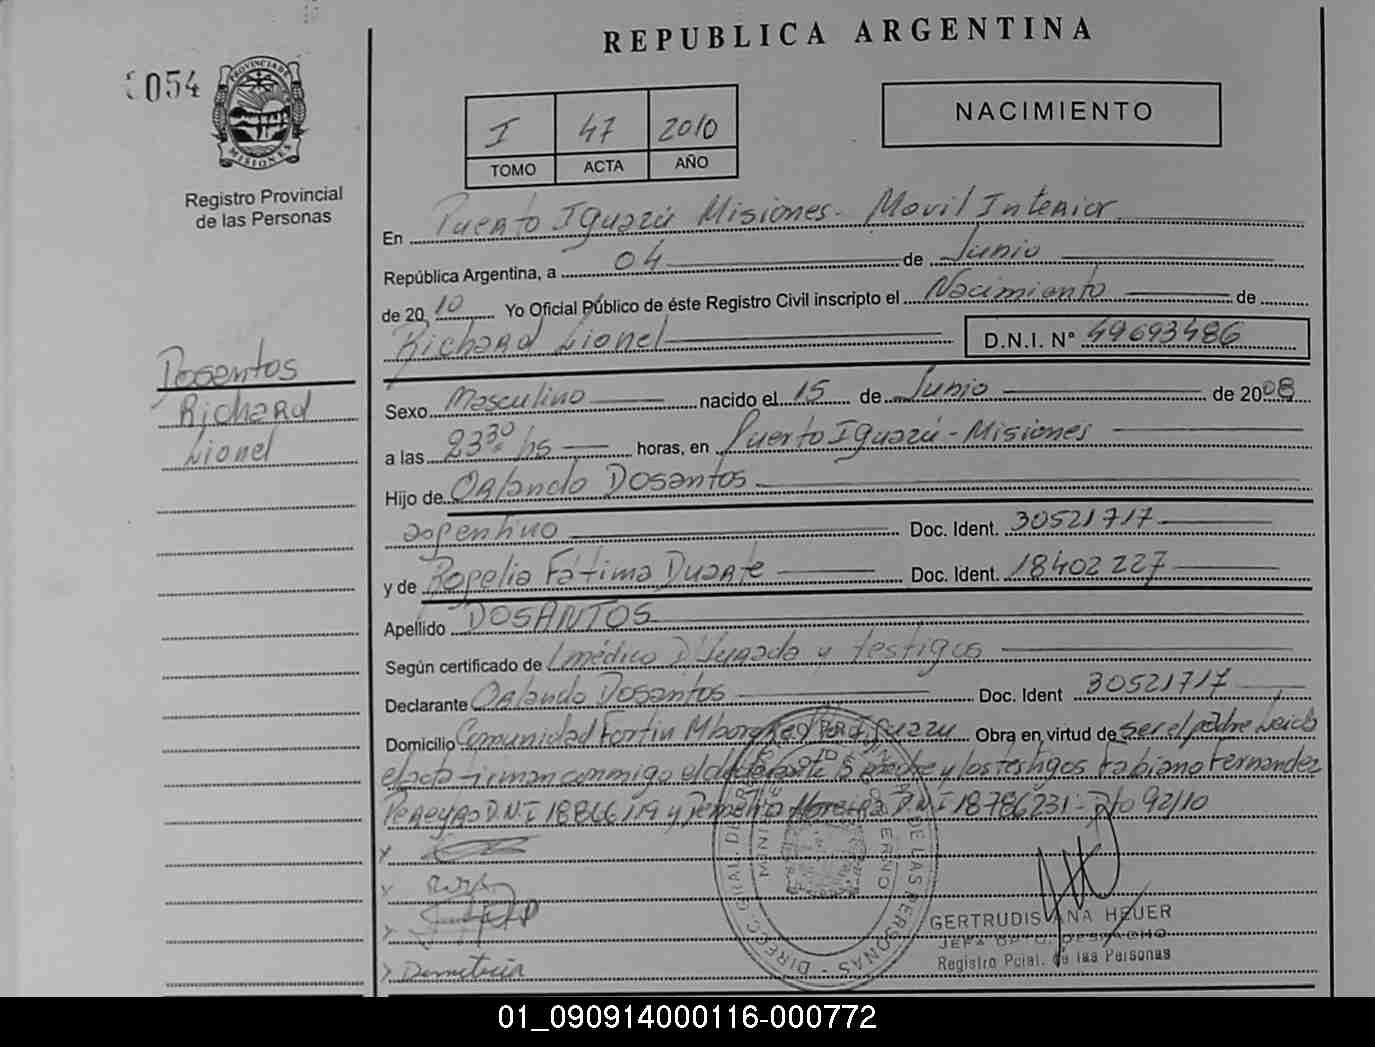 REPUBLICA ARGENTINA
054
PROVINCIA DE MISIONES
Registro Provincial
de las Personas
I 47 2010
TOMO ACTA AÑO
NACIMIENTO
En Puerto Iguazú Misiones - Movil Interior
República Argentina, a 04 de Junio
de 2010 Yo Oficial Público de éste Registro Civil inscripto el Nacimiento de
Richard Lionel D.N.I. N° 49693486
Dosantos
Richard
Lionel
Sexo Masculino nacido el 15 de Junio de 2008
a las 23 30 hs horas, en Puerto Iguazú - Misiones
Hijo de Orlando Dosantos
argentino Doc. Ident. 30521717
y de Rogelia Fátima Duarte Doc. Ident. 18402227
Apellido DOSANTOS
Según certificado de médico D'Jurada y testigos
Declarante Orlando Dosantos Doc. Ident 30521717
Domicilio Comunidad Fortin Mbororé Iguazu Obra en virtud de ser el padre Leida
el acta firman conmigo el declarante la madre y los testigos Fabiano Fernandez
Pereyra D.N.I 18866119 y Demetrio Moreira D.N.I 18786231 - Dto 92/10
GERTRUDIS ANA HEUER
JEFA DPTO. DESPACHO
Registro Pcial. de las Personas
Demetricia
01_090914000116-000772